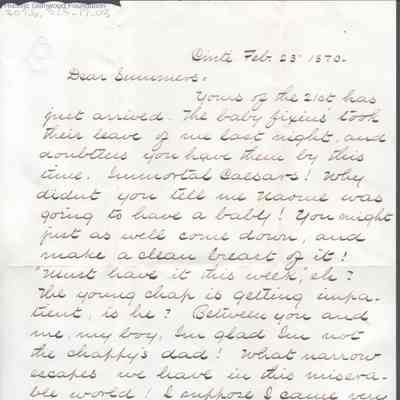 Historic Glenwood Foundation
Cinti Feb. 23rd 1870.
Dear Summers.
Yours of the 21st has
just arrived. The baby fixins' took
their leave of me last night, and
doubtless you have them by this
time. Immortal Caesars! Why
didnt you tell me Naomie was
going to have a baby! You might
just as well come down, and
make a clean breast of it!
"Must have it this week", eh?
The young chap is getting impa-
tient, is he? Between you and
me, my boy, I'm glad I'm not
the chappy's dad! What narrow
escapes we have in this misera-
ble world! I suppose I came very